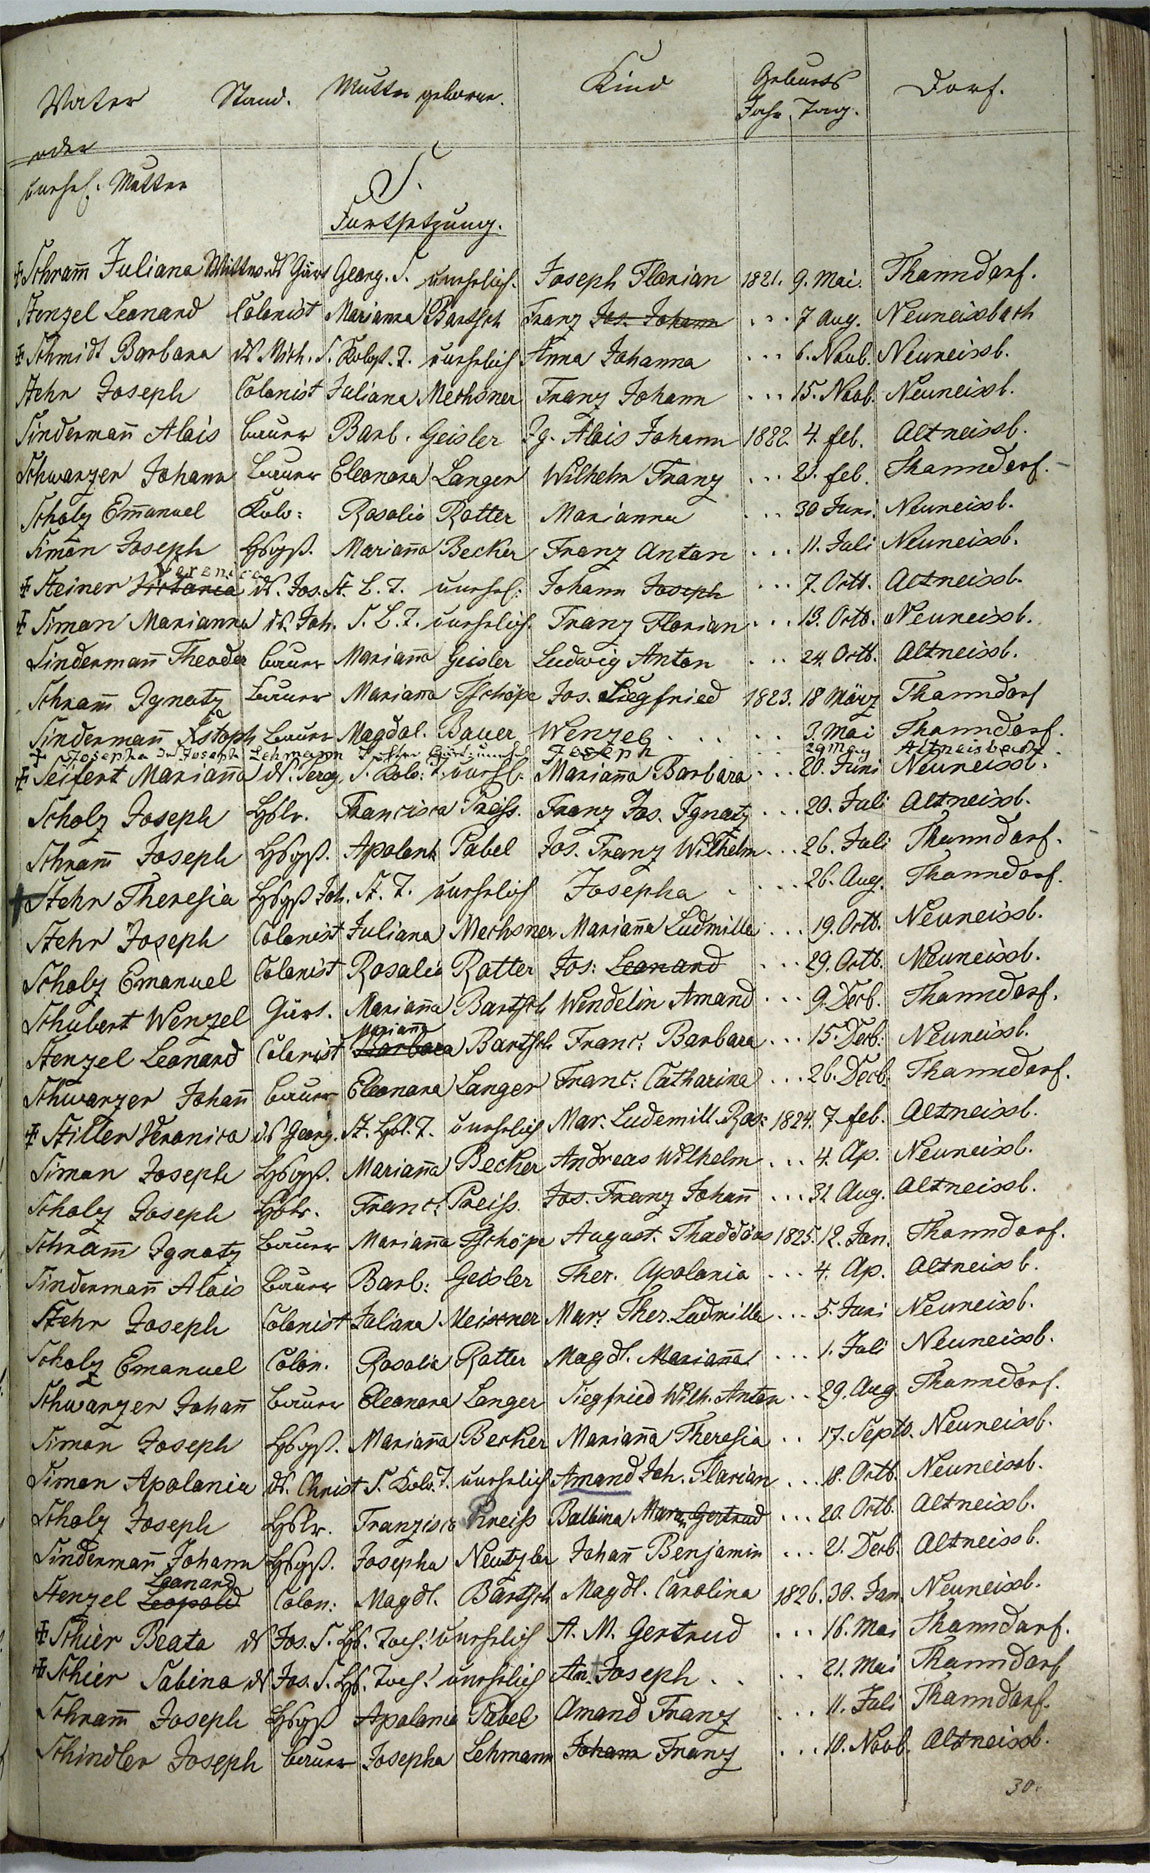 Vater Stand. Mutter geborne. Kind Geburts Jahr. Tag. Dorf.
oder
unehel. Mutter
S.
Fortsetzung.
Schram̄ Juliana Wittwe ds Gärt Georg. S. unehrlich. Joseph Florian 1821. 9. Mai. Thanndorf.
Stenzel Leonard Colonist Marianna Bartsch Franz Jos. Johann ... 7 Aug. Neuneissbach
Schmidt Barbara ds Mich. S. T. unehrlich Anna Johanna ... 6. Novb. Neuneissb.
Stehr Joseph Colonist Juliana Mechsner Franz Johann ... 15. Novb. Neuneissb.
Sindermañ Alois Bauer Barb. Geisler Ig. Alois Johann 1822 4. feb. Altneissb.
Schwarzer Johann Bauer Eleonora Langer Wilhelm Franz ... 21. feb. Thanndorf.
Scholz Em̄anuel Kolo: Rosalia Rotter Marianna ... 30 Juni. Neuneissb.
Simon Joseph Hsgß. Mariañna Becker Franz Anton ... 11. Juli Neuneissb.
Steiner Veronica ds. Jos. St. L. T. unehel: Johann Joseph ... 7. Octb. Altneissb.
Simon Marianna ds. Joh. S. L. T. unehrlich. Franz Florian ... 13. Octb. Neuneissb.
Sindermañ Theodor Bauer Mariañna Geisler Ludwig Anton ... 24. Octb. Altneissb.
Schram̄ Ignatz Bauer Marianna Tschöpe Jos. Siegfried 1823. 18 März Thanndorf
Sindermañ Xstoph Bauer Magdal. Bauer Wenzel ... 3. Mai Thanndorf.
Josepha des Joseph Lehmann Tochter Joseph 29 May Altneisbach
Seifert Mariañna ds. S. Kolo: T. unehl. Mariañna Barbara ... 20. Juni Neuneissb.
Scholz Joseph Hslr. Francisca Preiss. Franz Jos. Ignatz ... 20. Juli Altneissb.
Schram̄ Joseph Hsgß. Apolonia Pabel Jos. Franz Wilhelm ... 26. Juli Thanndorf.
Stehr Theresia Hsgß Joh. St. T. unehrlich Josepha ... 26. Aug. Thanndorf.
Stehr Joseph Colonist Juliana Mechsner Mariañna Ludmilla ... 19. Octb. Neuneissb.
Scholz Emanuel Colonist Rosalia Rotter Jos: Leonard ... 29. Octb. Neuneissb.
Schubert Wenzel Gärt. Mariañna Bartsch Wendelin Amand ... 9. Decb. Thanndorf.
Stenzel Leonard Colonist Barbara Marianna Bartsch Franc: Barbara ... 15. Decb. Neuneissb.
Schwarzer Johañ Bauer Eleonora Langer Franc: Catharina ... 26. Decb. Thanndorf.
Stiller Veronica ds Georg. St. Hsl. T. unehrlich Mar. Ludemill. Ros: 1824. 7. feb. Altneissb.
Simon Joseph Hsgß. Mariañna Becker Andreas Wilhelm ... 4. Ap. Neuneissb.
Scholz Joseph Hslr. Franc: Preiss. Jos. Franz Johañ ... 31. Aug. Altneissb.
Schram̄ Ignatz Bauer Mariañna Tschöpe August. Thaddäus 1825. 12. Jan. Thanndorf.
Sindermañ Alois Bauer Barb: Geisler Ther. Apolonia ... 4. Ap. Altneissb.
Stehr Joseph Colonist Juliana Meissner Mar: Ther. Ludmilla ... 5. Juni Neuneissb.
Scholz Emanuel Colon. Rosalia Rotter Magdl. Mariañna ... 1. Juli Neuneissb.
Schwarzer Johañ Bauer Eleonora Langer Siegfried Wilh. Anton .. 29. Aug. Thanndorf.
Simon Joseph Hsgß. Mariañna Becker Mariañna Theresia .. 17. Septb. Neuneissb.
Simon Apolonia ds. Christ S. Kolo. T. unehrlich Amand Joh. Florian ... 18. Octb. Neuneissb.
Scholz Joseph Hslr. Franzisca Preiss Balbina Mar: Gertrud ... 20. Octb. Altneissb.
Sindermañ Johann Hsgß. Josepha Neutzler Johañ Benjamin ... 21. Decb. Altneissb.
Stenzel Leopold Leonard Colon: Magdl. Bartsch Magdl. Carolina 1826. 30. Jan. Neuneissb.
Schier Beata ds Jos. S. Hs. Toch! unehrlich A. M. Gertrud ... 16. Mai Thanndorf.
Schier Sabina ds Jos. S. Hs. Toch! unehrlich Joseph .. 21. Mai Thanndorf
Schram̄ Joseph Hsgß Apolonia Pabel Amand Franz ... 11. Juli Thanndorf.
Schindler Joseph Bauer Josepha Lehmann Johann Franz ... 10. Novb. Altneissb.
30.